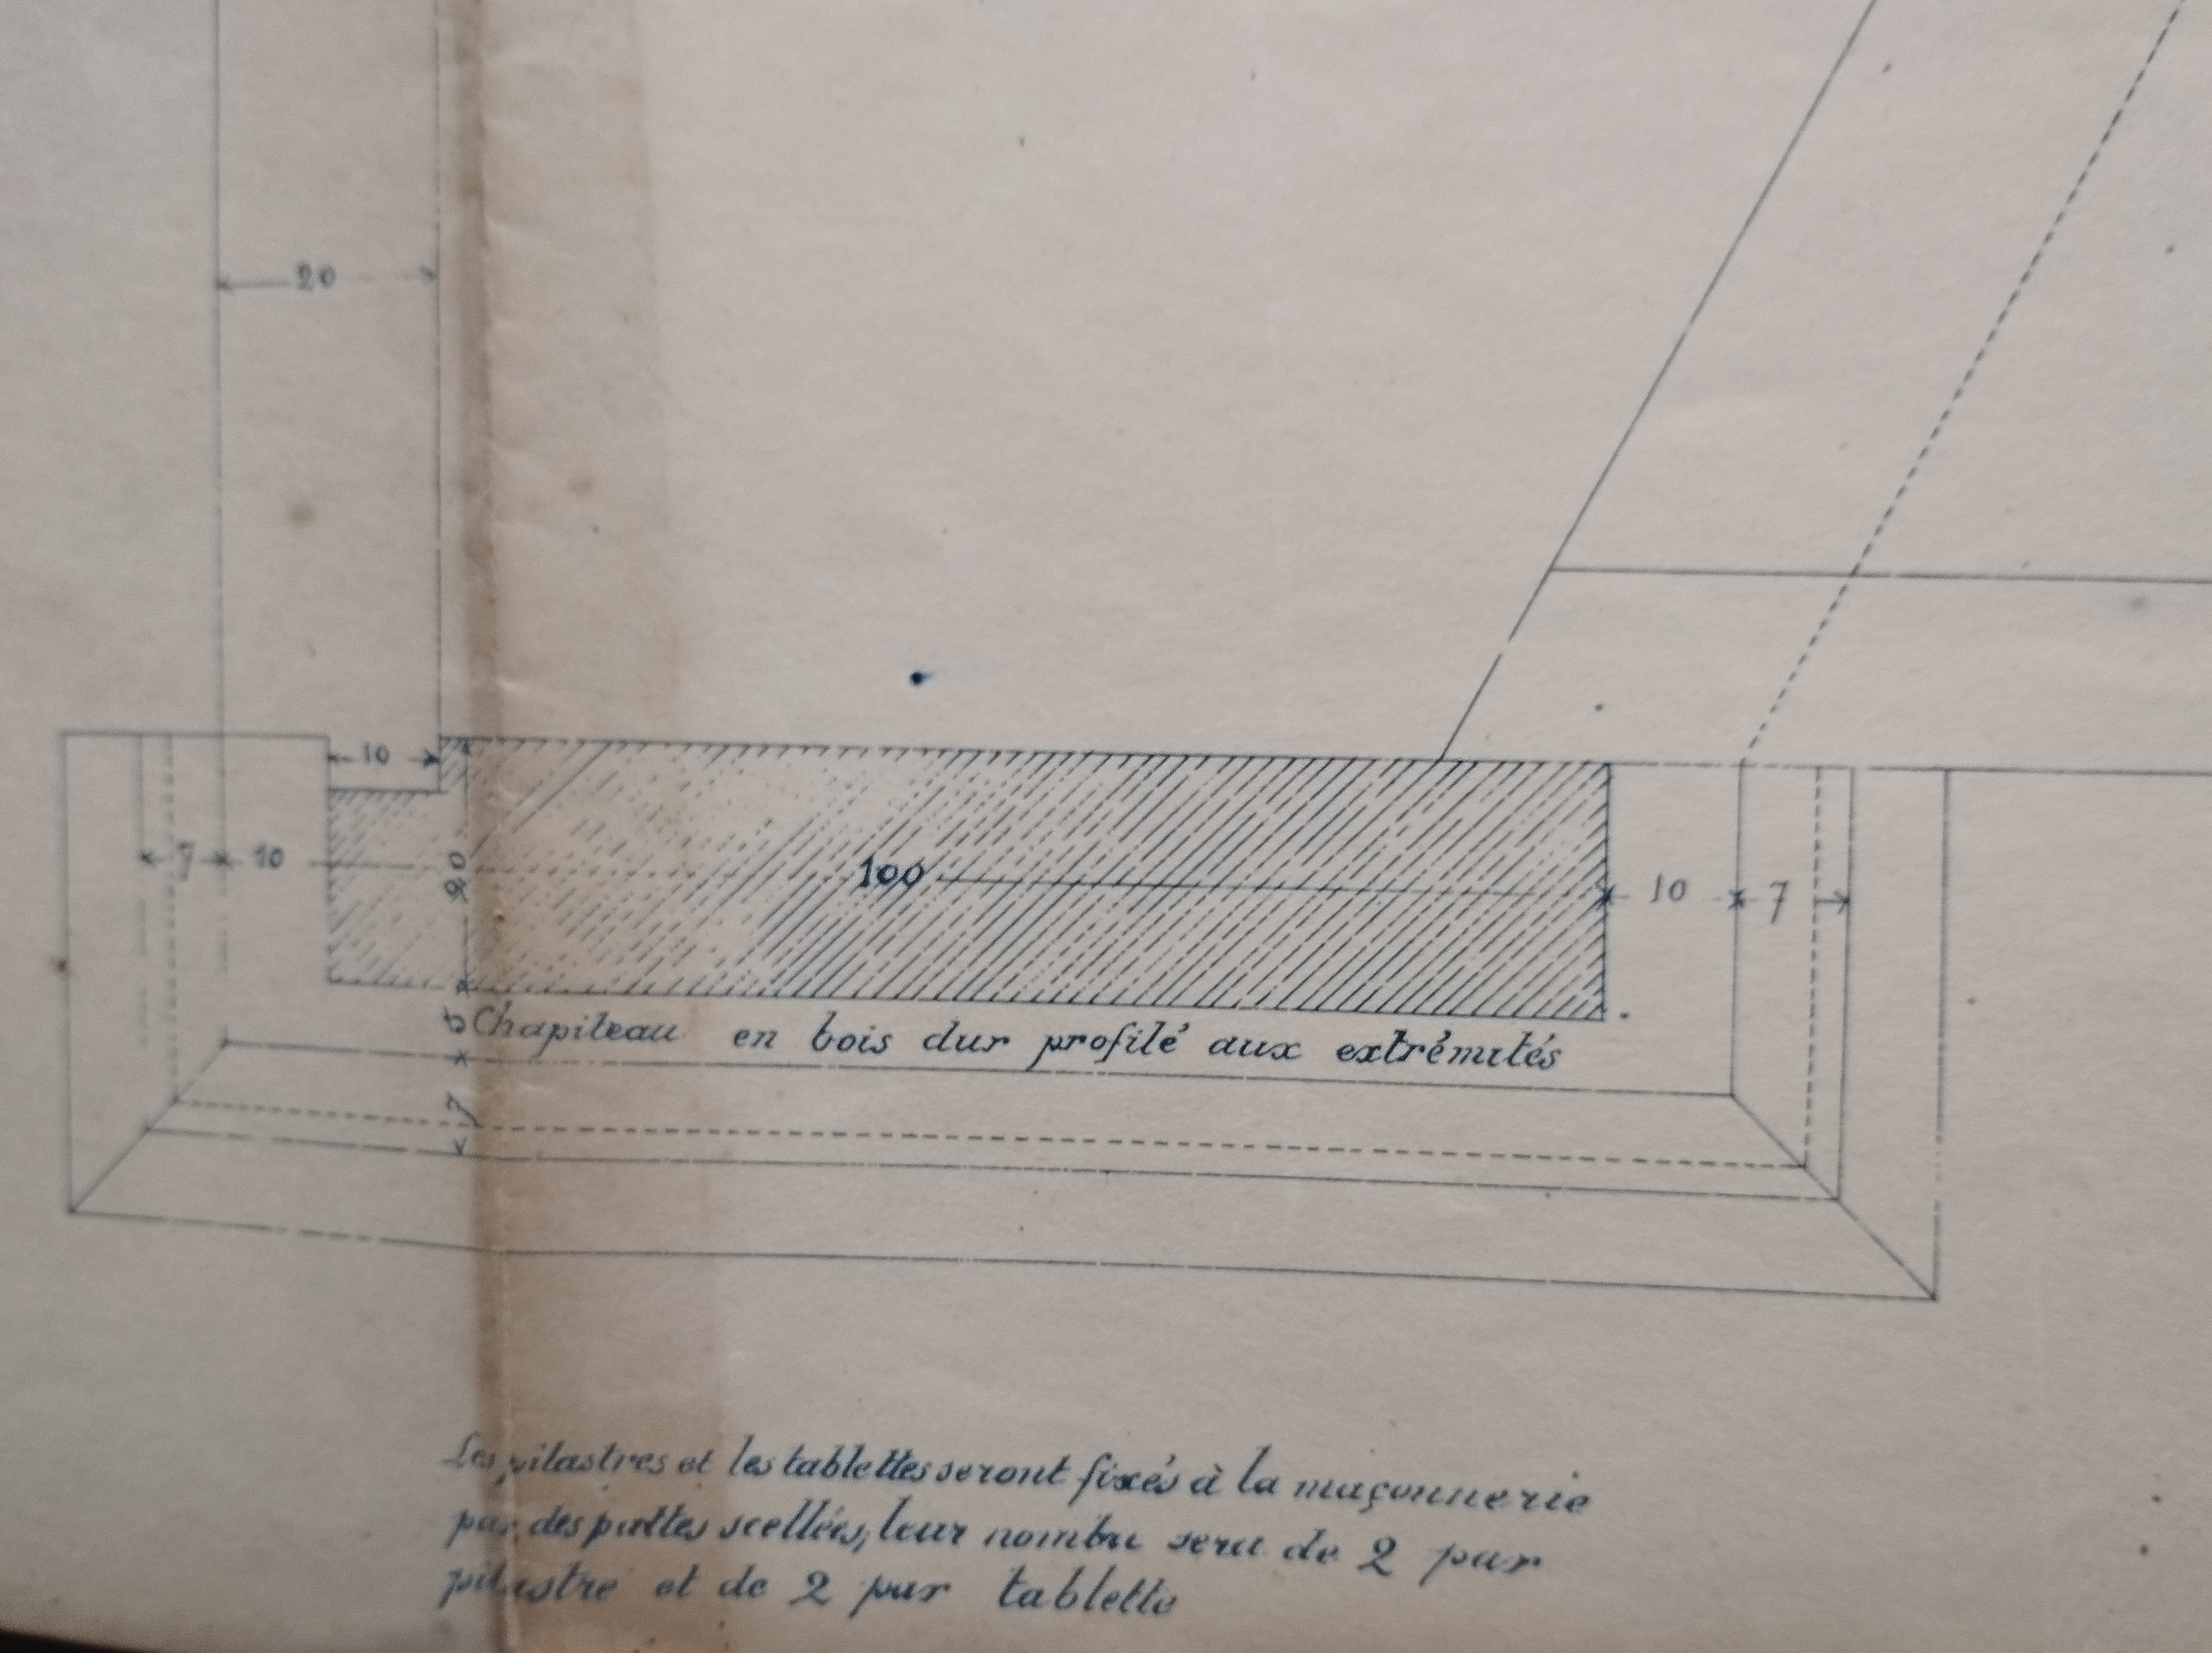 20
10
7 10
20
100
10 7
5
Chapiteau en bois dur profilé aux extrémités
7
Les pilastres et les tablettes seront fixés à la maçonnerie
par des pattes scellées, leur nombre sera de 2 par
pilastre et de 2 par tablette